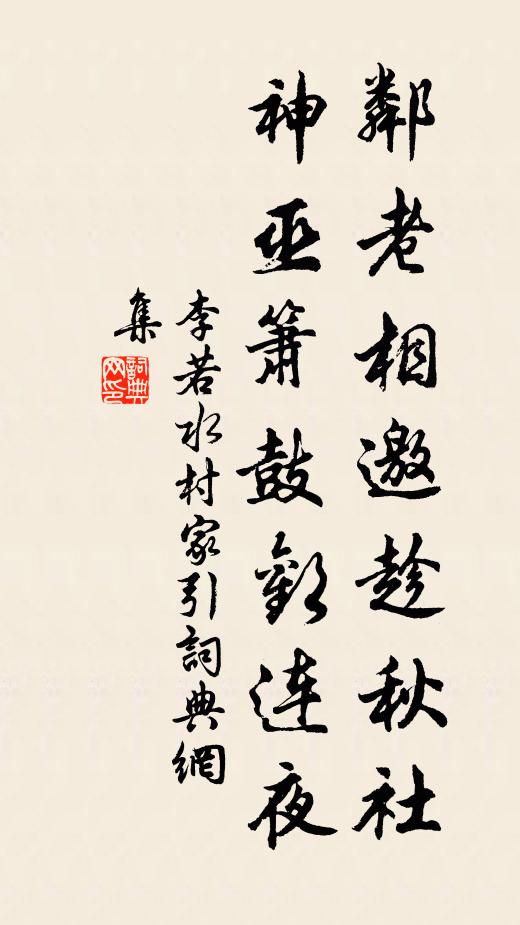 鄰老相邀趁秋社
神巫簫鼓歡連夜
李若水村家引詞典網
集
詞典網印